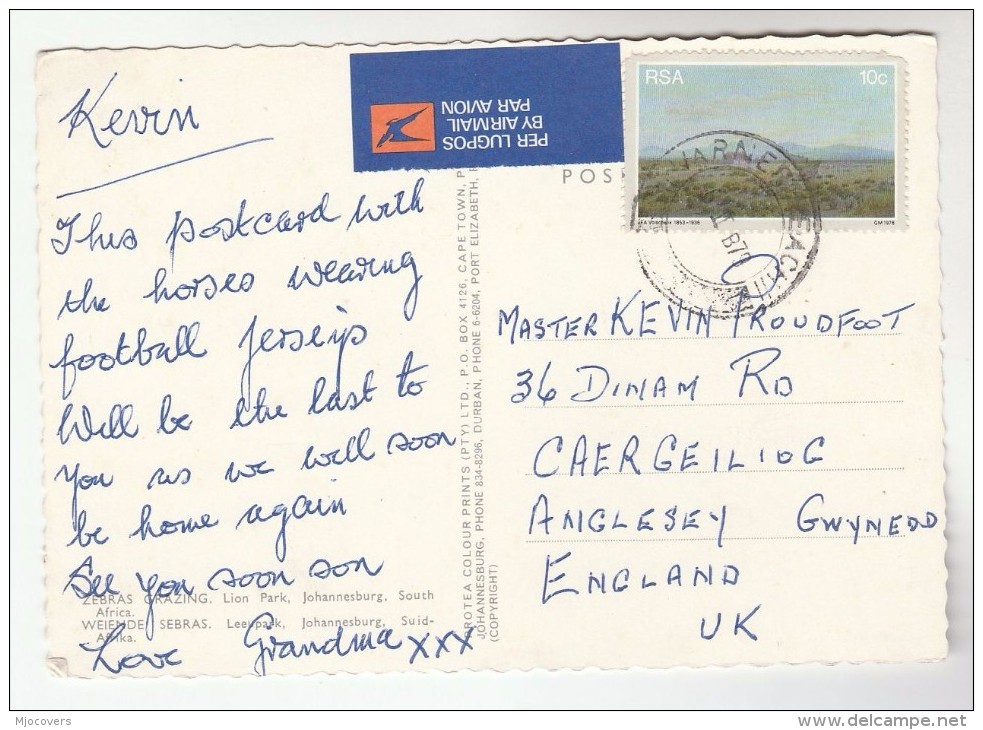 Kevin
This postcard with
the horses wearing
football jerseys
Will be the last to
you as we will soon
be home again
See you soon son
Love Grandma xxx
ZEBRAS GRAZING. Lion Park, Johannesburg, South
Africa.
WEIENDE SEBRAS. Leeupark, Johannesburg, Suid-
Afrika.
PROTEA COLOUR PRINTS (PTY) LTD., P.O. BOX 4126, CAPE TOWN, P
JOHANNESBURG, PHONE 834-8296, DURBAN, PHONE 6-6204, PORT ELIZABETH,
(COPYRIGHT)
PER LUGPOS
BY AIRMAIL
PAR AVION
POS
RSA 10c
1853-1936
GM 1978
MASTER KEVIN PROUDFOOT
36 DINAM RD
CAERGEILIOG
ANGLESEY GWYNEDD
ENGLAND
UK
Mjocovers